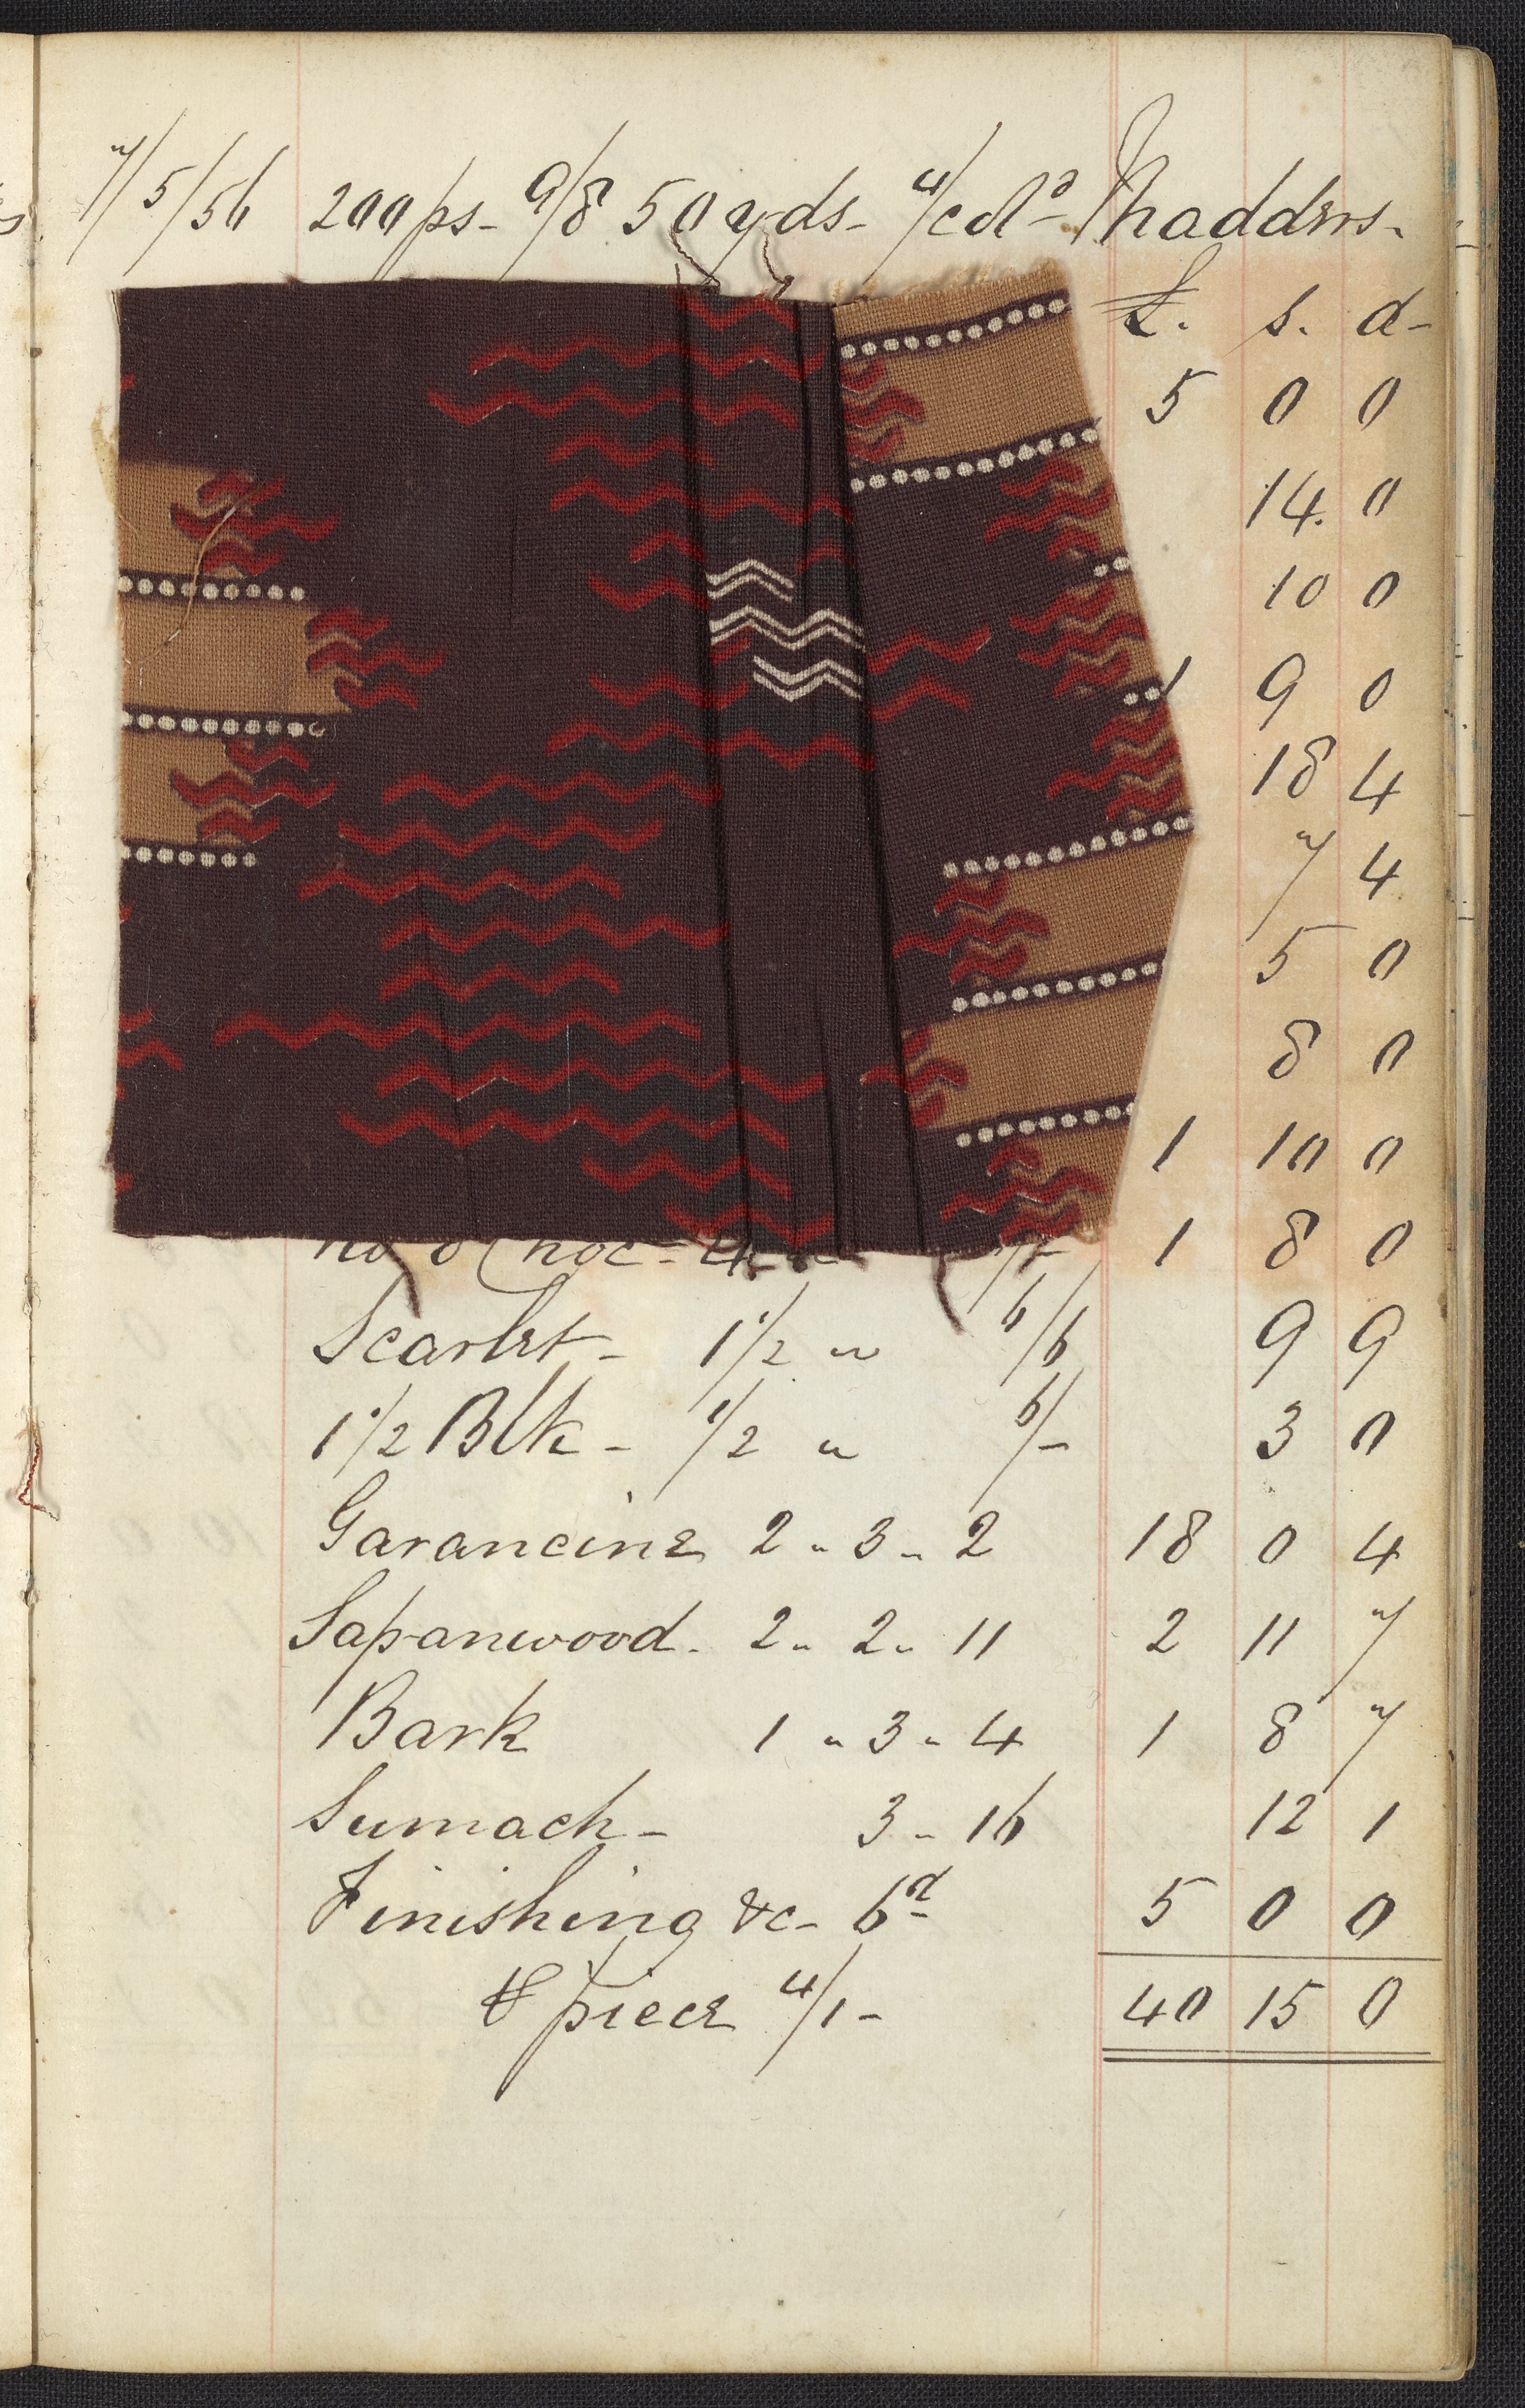 7/5/56 200 ps- 9/8 50 yds- 4/cld Madders-
£. s. d-
5 0 0
14. 0
10 0
1 9 0
18 4
7 4
5 0
8 0
1 10 0
No 8 Choc- 4 " 7/- 1 8 0
Scarlet- 1 1/2 " 6/6 9 9
1 1/2 Blk- 1/2 " 6/- 3 0
Garancine 2 " 3 " 2 18 0 4
Sapanwood- 2 " 2 " 11 2 11 7
Bark 1 " 3 " 4 1 8 7
Sumach- 3 " 16 12 1
Finishing &c- 6d 5 0 0
℔ piece 4/1- 40 15 0